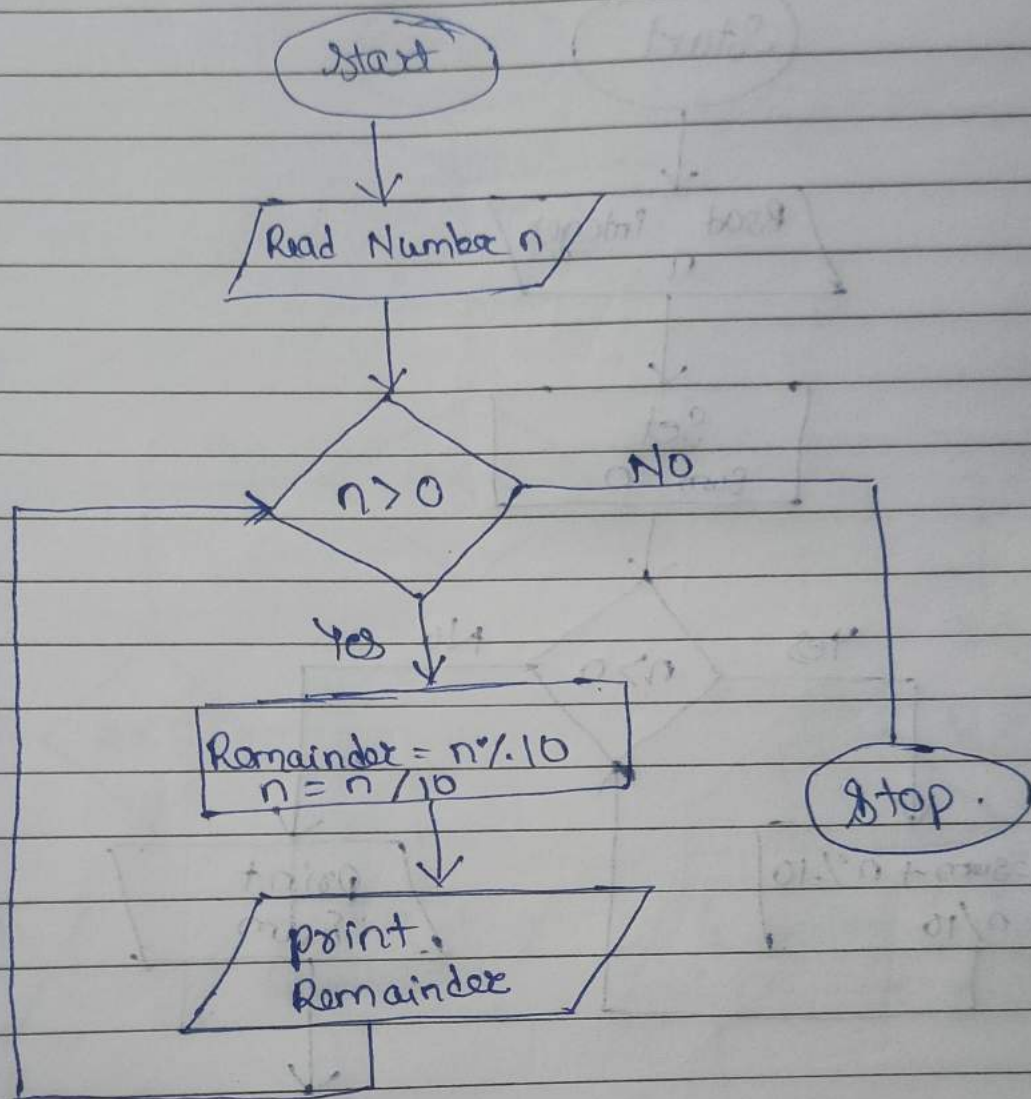 Start
Read Number n
n>0
NO
Yes
Remainder = n%10
n = n/10
Stop.
print
Remainder